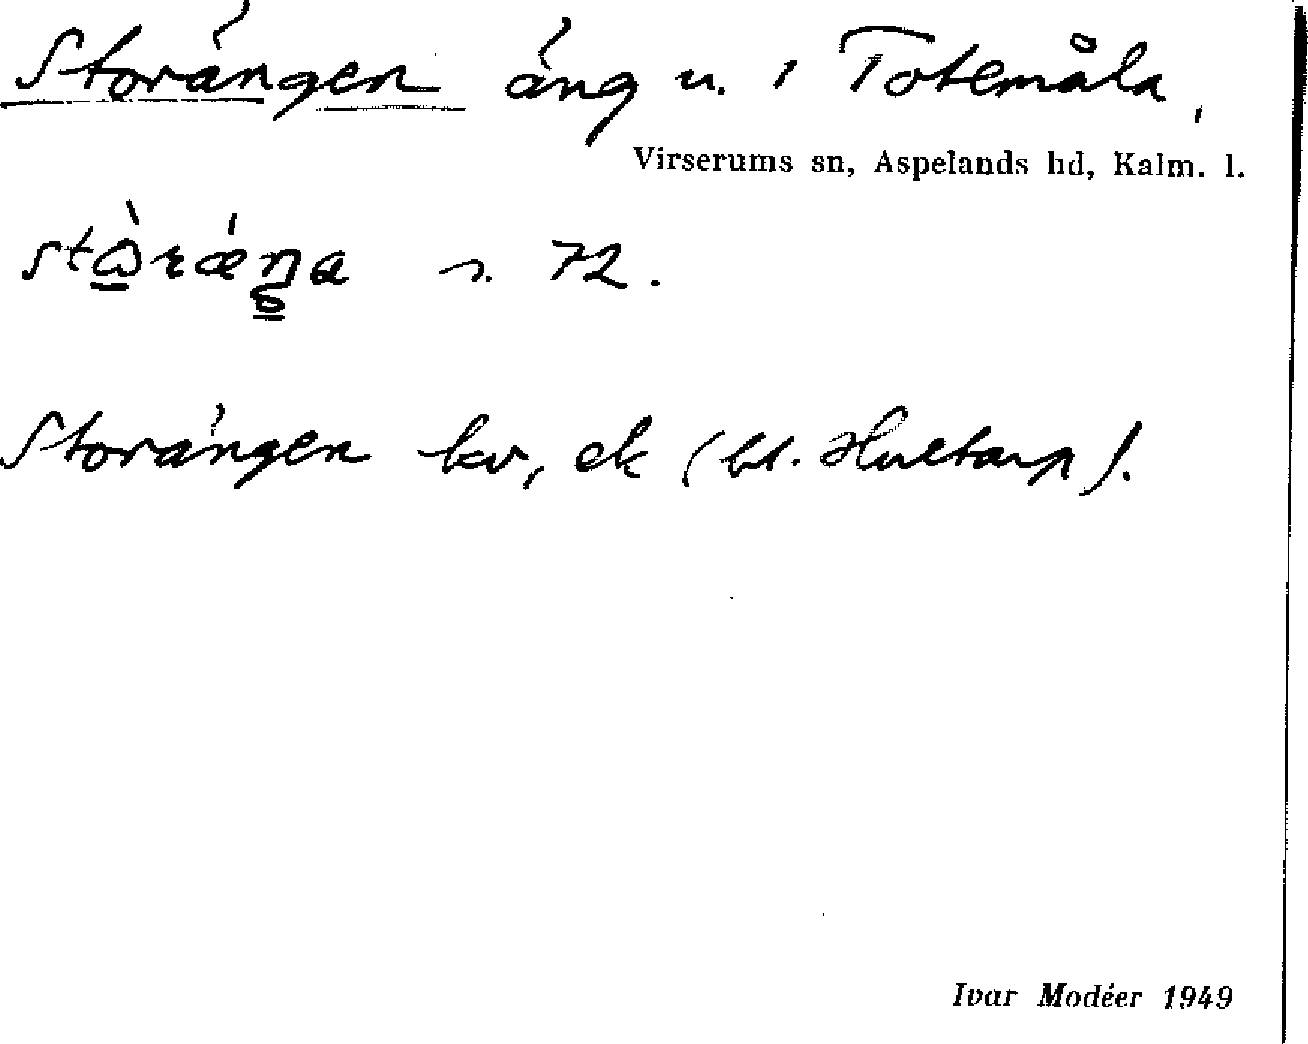 Storängen äng u. i Totemåla,
Virserums sn, Aspelands hd, Kalm. l.
s. 72.
Storängen kv, ek (bl. Hultarp).
Ivar Modéer 1949